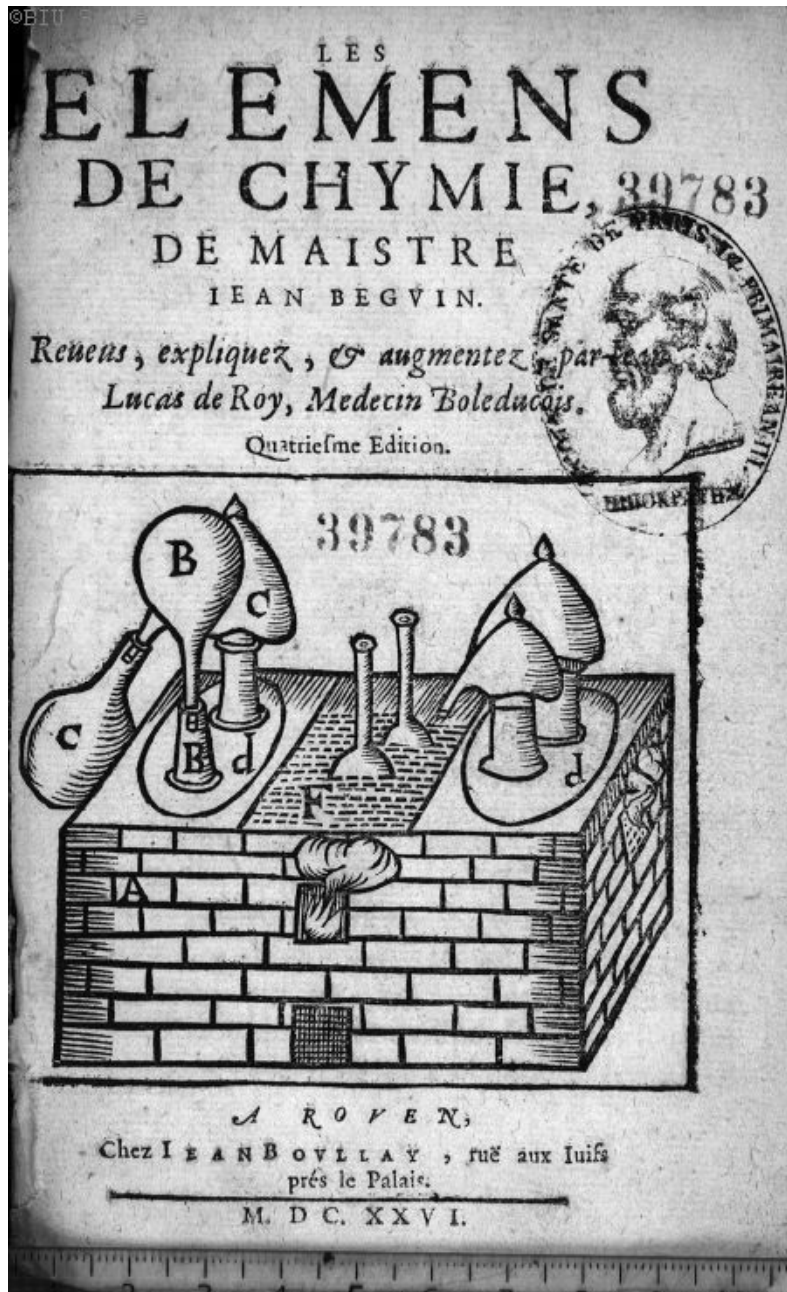 ©BIU
LES
ELEMENS
DE CHYMIE,
39783
DE MAISTRE
IEAN BEGVIN.
Reueus, expliquez, & augmentez, par Iean
Lucas de Roy, Medecin Boleducois.
Quatriesme Edition.
DE PARIS
PRIMAIRE AN III.
39783
B
C
C
B
d
F
d
A
A ROVEN,
Chez IEAN BOVLLAY, ruë aux Iuifs
prés le Palais.
M. DC. XXVI.
2 3 4 5 6 7 8 9